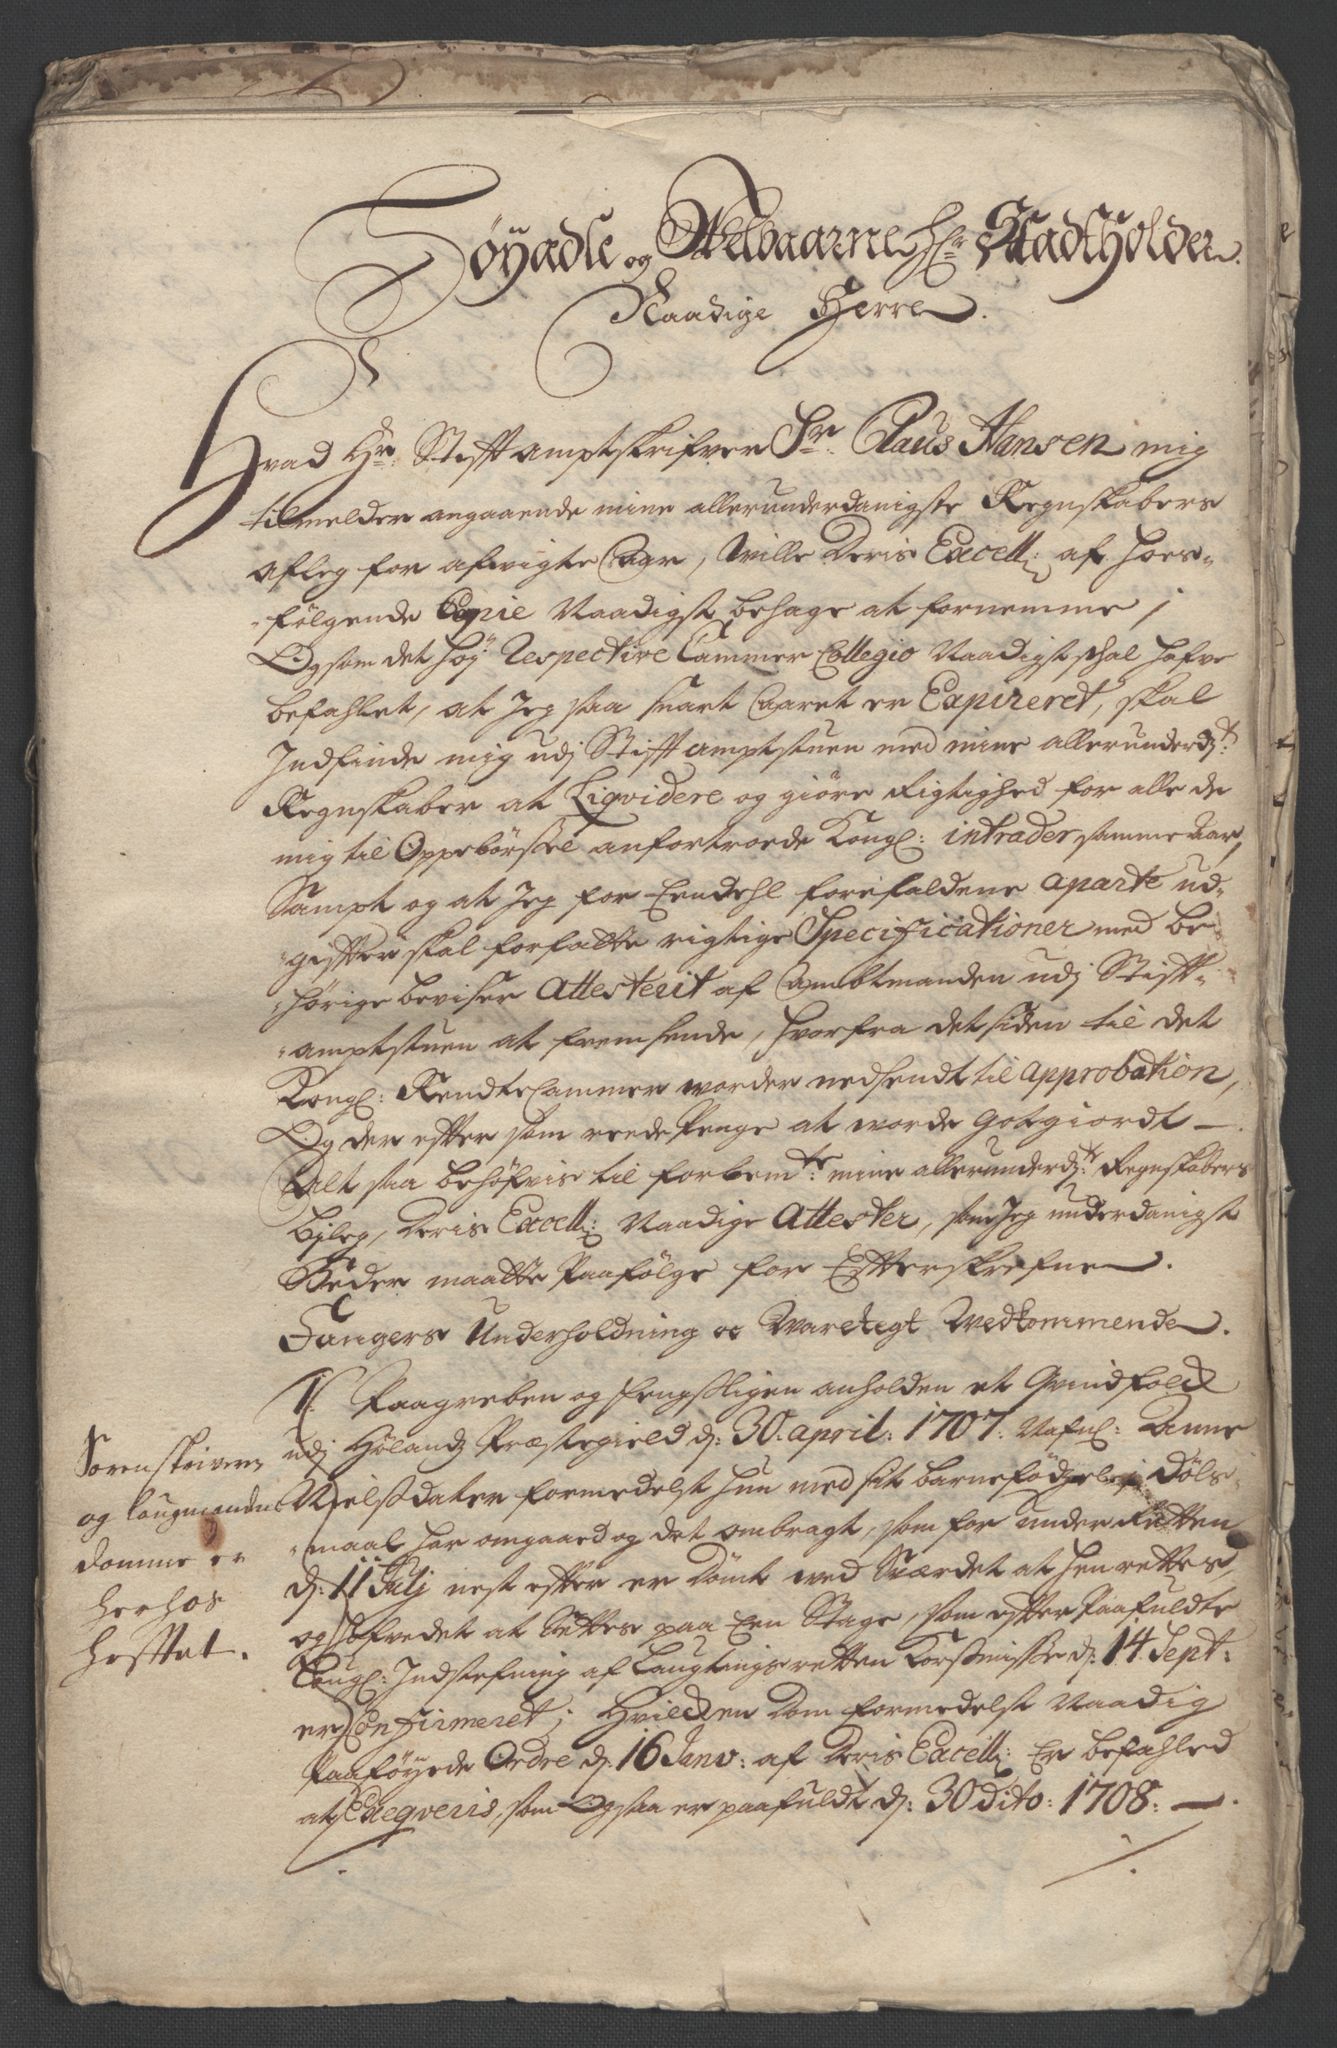 Höyædle og Welbaarne Hr: Stadtholder.
Naadige Herre.
Hvad Hr: Stifftamptskrifver Sr: Claus Hansen mig
tilmelder angaaende mine allerunderdanigste Regnskabers
aflegg for afvigte Aar, Wille Deris Excell: af hoes-
følgende Copie Naadigst behage at fornemme;
Og som det høy Respective Cammer Collegio Naadigst schal hafve
befahlet, at Jeg saa snart Aaret er Expireret, skal
Indfinde mig udj Stifftamptstuen med mine allerunderdste:
Regnskaber at Liqvidere og giøre Rigtighed for alle de
mig til Oppebørssel anfortroede Kongl: intrader samme Aar,
Sampt og at Jeg for Eendehl forefaldene aparte ud-
giffter skal forfatte rigtige Specificationer med be-
hørige beviser Attesterit af Ambtmanden udj Stifft-
amptstuen at fremsende, hvorfra det siden til det
Kongl: RendteCammer worder nedsendt til Approbation,
Og der effter som reede Penge at worde Gotgiordt —
Alt saa behøfvis til forbemte: mine allerunderdste: Regnskabers
bjleg, Deris Excell: Naadige Attester, som Jeg underdanigst
Beder maatte Paafølge for Effterskrefne.
Fangers Underholdning oc Waretegt Wedkommende.
1. Paagreben og fengsligen anholden et Qvindfolck
udj Hølands Præstegield d: 30. april: 1707. Nafnl: Anne
Nielsdater formedelst hun med sit barnefødssel i Døls-
maal har omgaaed og det ombragt, som for under Retten
d: 11 Julj nest effter er Dømt med Sværdet at henrettes,
og hofvedet at Settes paa Een Stage, som effter Paafuldte
Kongl: Indstefning af Laugtingsretten Korssmisse d: 14 Sept:
er Confirmeret; Hvilcken Dom formedelst Naadig
Paaføyede Ordre d: 16 Janv: af Deris Excell: Er befahled
at Exeqveris, som Ogsaa er paafuldt d: 30 dito: 1708. —
Sorenskriverens
og laugmandens
domme er
herhos
hefftet.